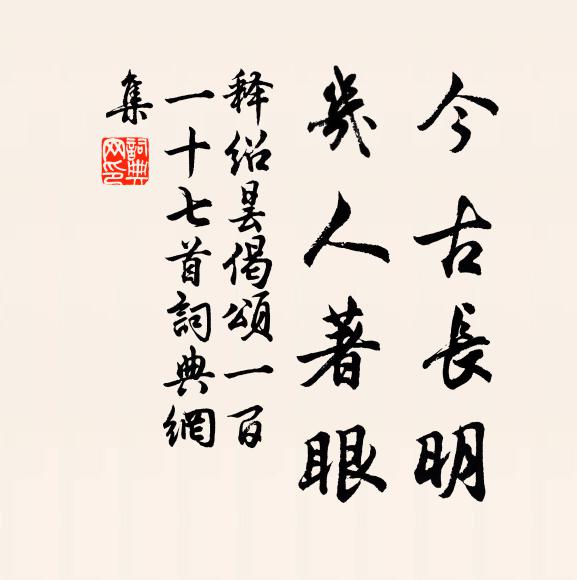 今古長明
幾人著眼
释紹曇偈頌一百
一十七首詞典網
集
詞典网印